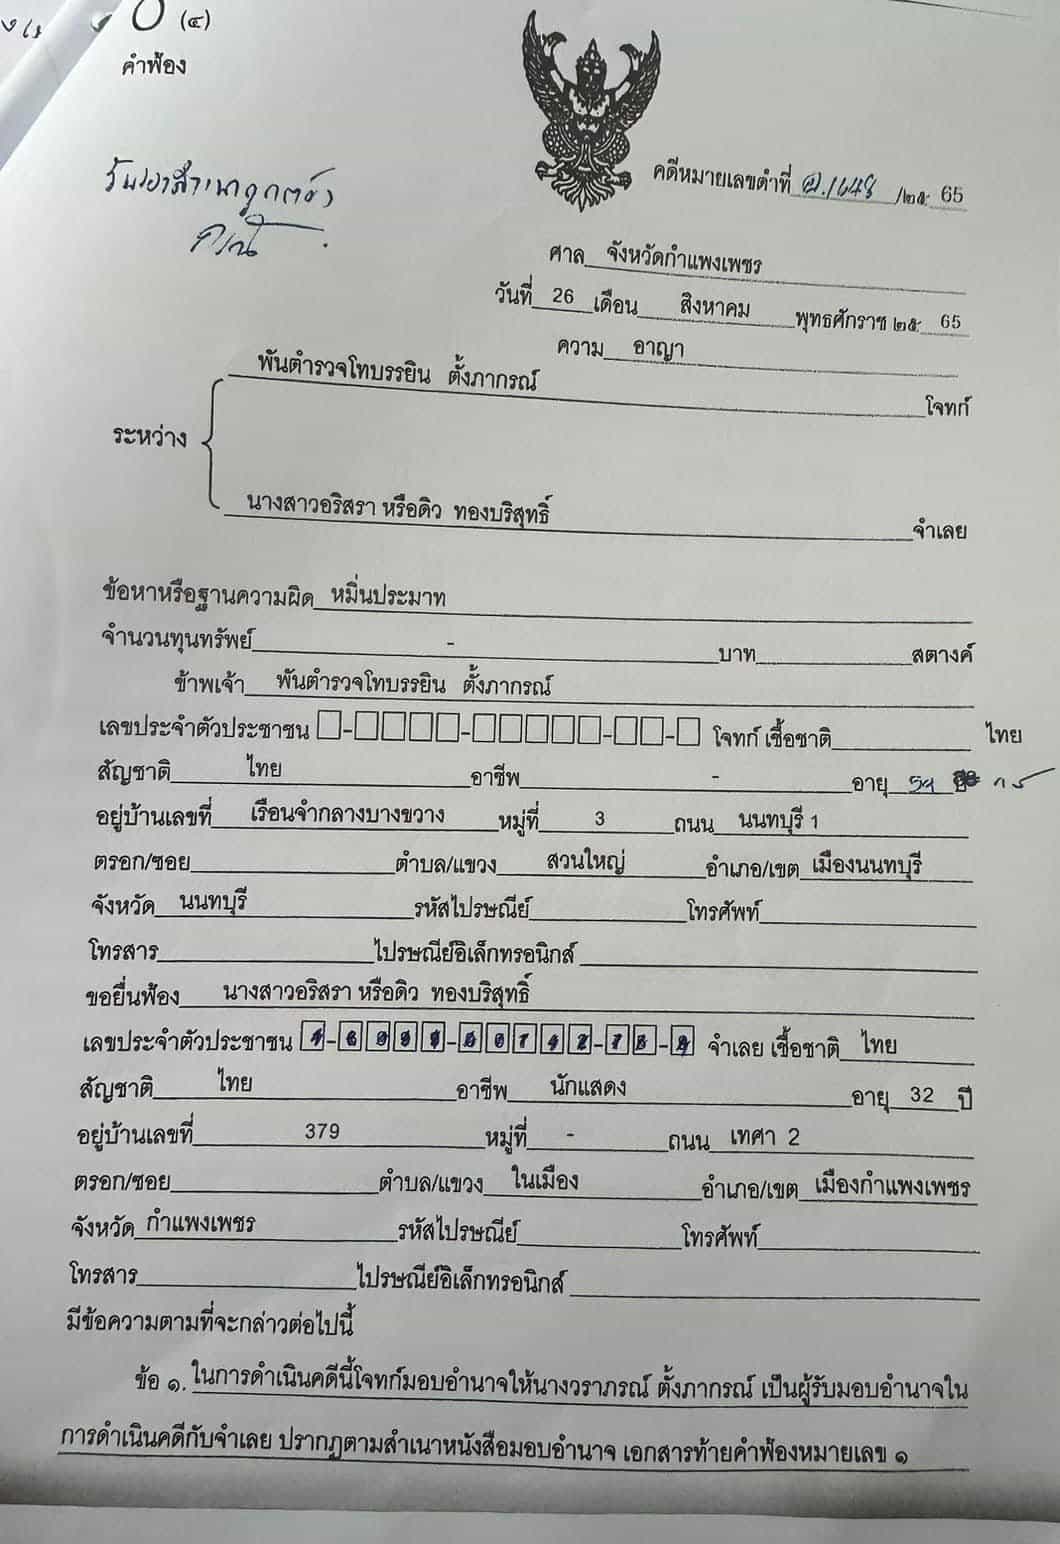 (๔)
คำฟ้อง
รับรองสำเนาถูกต้อง
คดีหมายเลขดำที่ อ.1648 /๒๕ 65
ศาล จังหวัดกำแพงเพชร
วันที่ 26 เดือน สิงหาคม พุทธศักราช ๒๕ 65
ความ อาญา
พันตำรวจโทบรรยิน ตั้งภากรณ์ โจทก์
ระหว่าง
นางสาวอริสรา หรือดิว ทองบริสุทธิ์ จำเลย
ข้อหาหรือฐานความผิด หมิ่นประมาท
จำนวนทุนทรัพย์ - บาท สตางค์
ข้าพเจ้า พันตำรวจโทบรรยิน ตั้งภากรณ์
เลขประจำตัวประชาชน โจทก์ เชื้อชาติ ไทย
สัญชาติ ไทย อาชีพ - อายุ
อยู่บ้านเลขที่ เรือนจำกลางบางขวาง หมู่ที่ 3 ถนน นนทบุรี 1
ตรอก/ซอย ตำบล/แขวง สวนใหญ่ อำเภอ/เขต เมืองนนทบุรี
จังหวัด นนทบุรี รหัสไปรษณีย์ โทรศัพท์
โทรสาร ไปรษณีย์อิเล็กทรอนิกส์
ขอยื่นฟ้อง นางสาวอริสรา หรือดิว ทองบริสุทธิ์
เลขประจำตัวประชาชน จำเลย เชื้อชาติ ไทย
สัญชาติ ไทย อาชีพ นักแสดง อายุ 32 ปี
อยู่บ้านเลขที่ 379 หมู่ที่ - ถนน เทศา 2
ตรอก/ซอย ตำบล/แขวง ในเมือง อำเภอ/เขต เมืองกำแพงเพชร
จังหวัด กำแพงเพชร รหัสไปรษณีย์ โทรศัพท์
โทรสาร ไปรษณีย์อิเล็กทรอนิกส์
มีข้อความตามที่จะกล่าวต่อไปนี้
ข้อ ๑. ในการดำเนินคดีนี้โจทก์มอบอำนาจให้นางวราภรณ์ ตั้งภากรณ์ เป็นผู้รับมอบอำนาจใน
การดำเนินคดีกับจำเลย ปรากฏตามสำเนาหนังสือมอบอำนาจ เอกสารท้ายคำฟ้องหมายเลข ๑